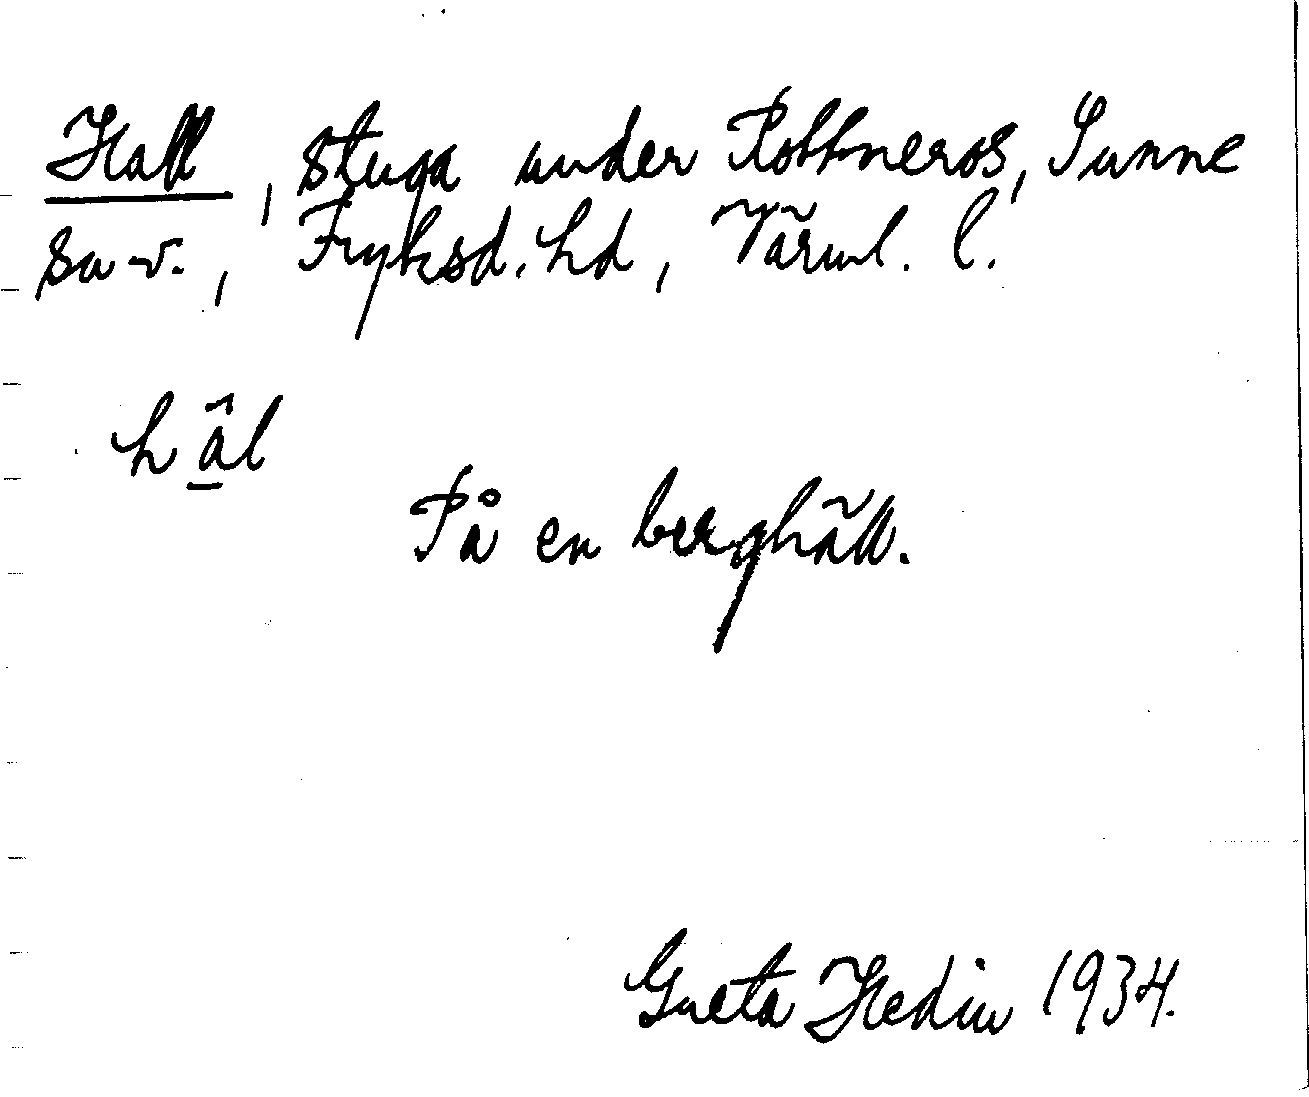 Hall, stuga under Rottneros, Sunne
sn-v., Fryksd. hd, Värml. l.
hâ̱l
På en berghäll.
Greta Hedin 1934.